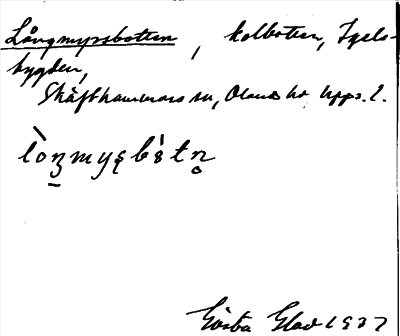 Långmyrsbotten, kolbotten, Igels-
bygden,
Skäfthammars sn, Olands hd Upps. l.
lòn̠myʂbòtn̥
Gösta Glad 1937